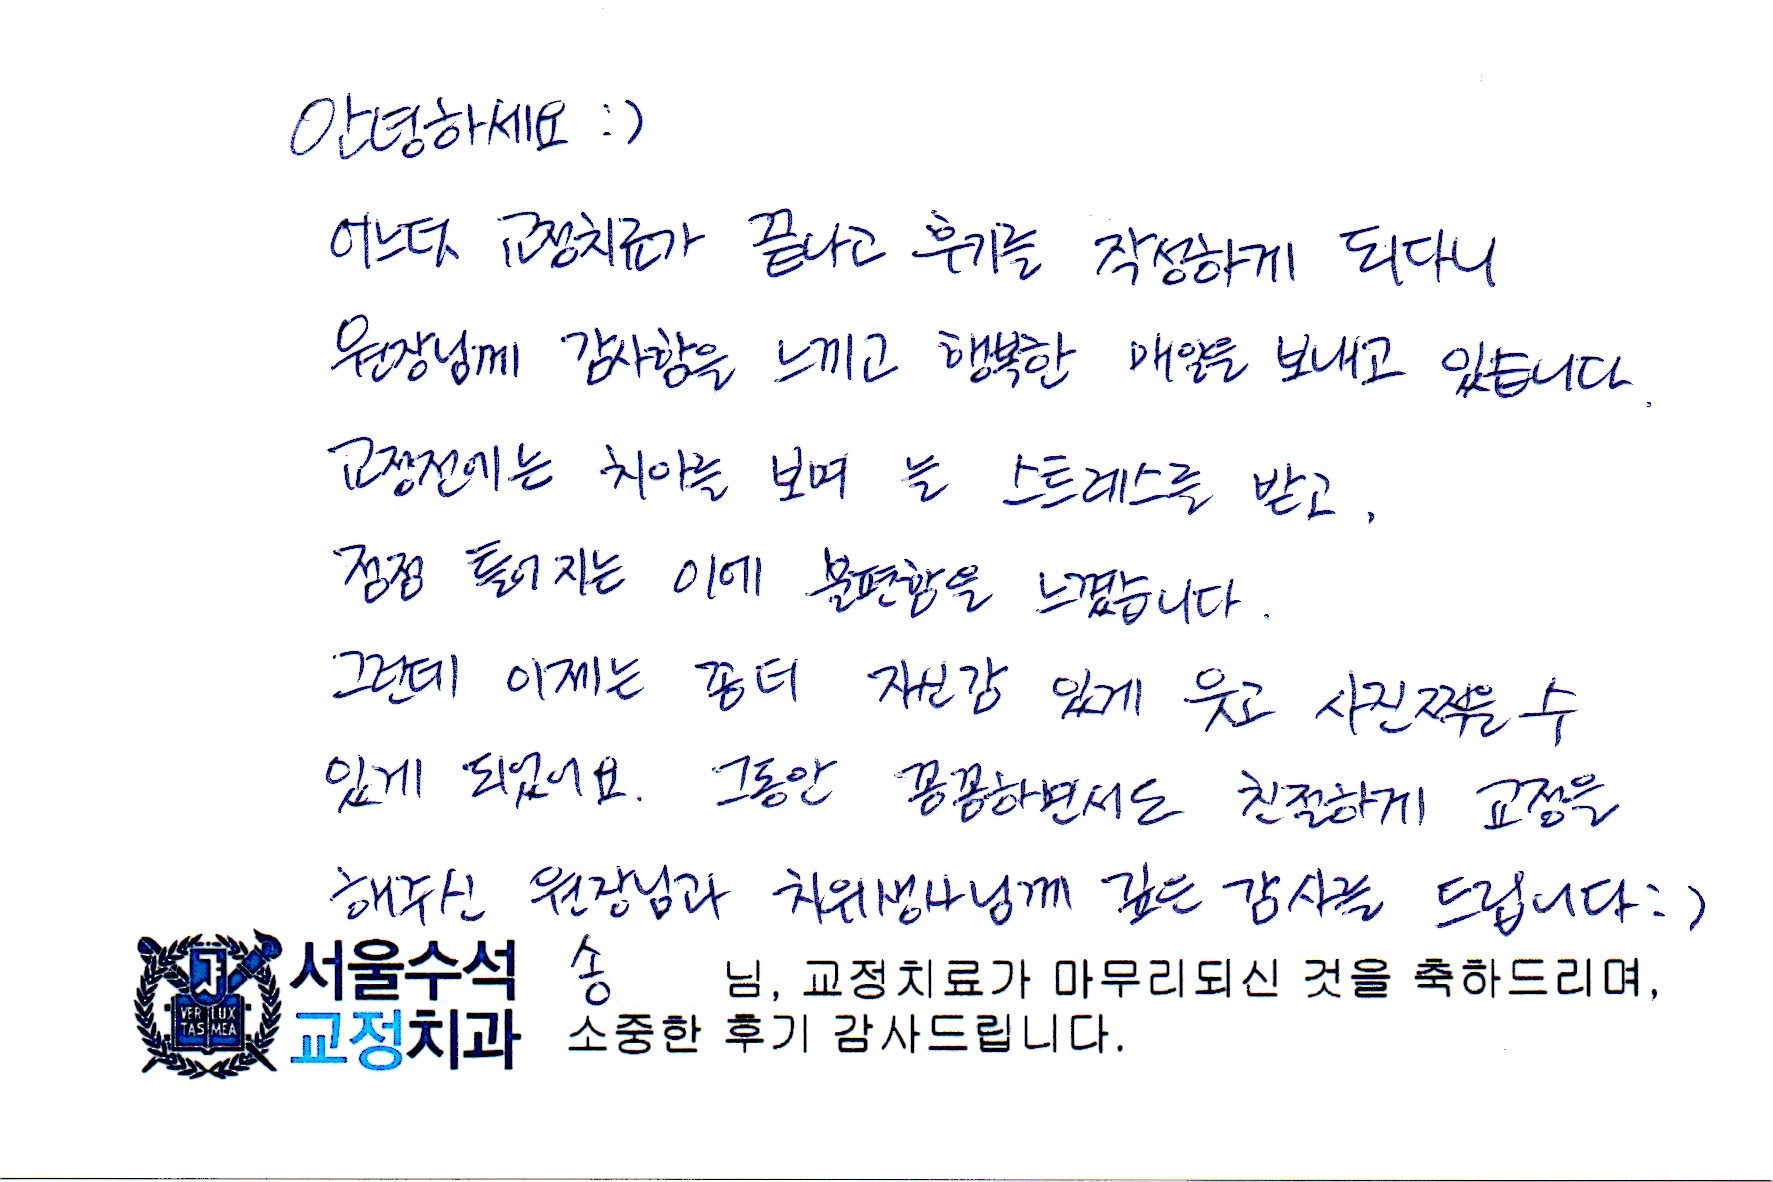 안녕하세요 :)
어느덧 교정치료가 끝나고 후기를 작성하게 되다니
원장님께 감사함을 느끼고 행복한 매일을 보내고 있습니다.
교정전에는 치아를 보며 늘 스트레스를 받고,
점점 틀어지는 이에 불편함을 느꼈습니다.
그런데 이제는 좀 더 자신감 있게 웃고 사진찍을 수
있게 되었어요. 그동안 꼼꼼하면서도 친절하게 교정을
해주신 원장님과 치위생사님께 깊은 감사를 드립니다 :)
서울수석 송 님, 교정치료가 마무리되신 것을 축하드리며,
교정치과 소중한 후기 감사드립니다.
VERI LUX
TAS MEA